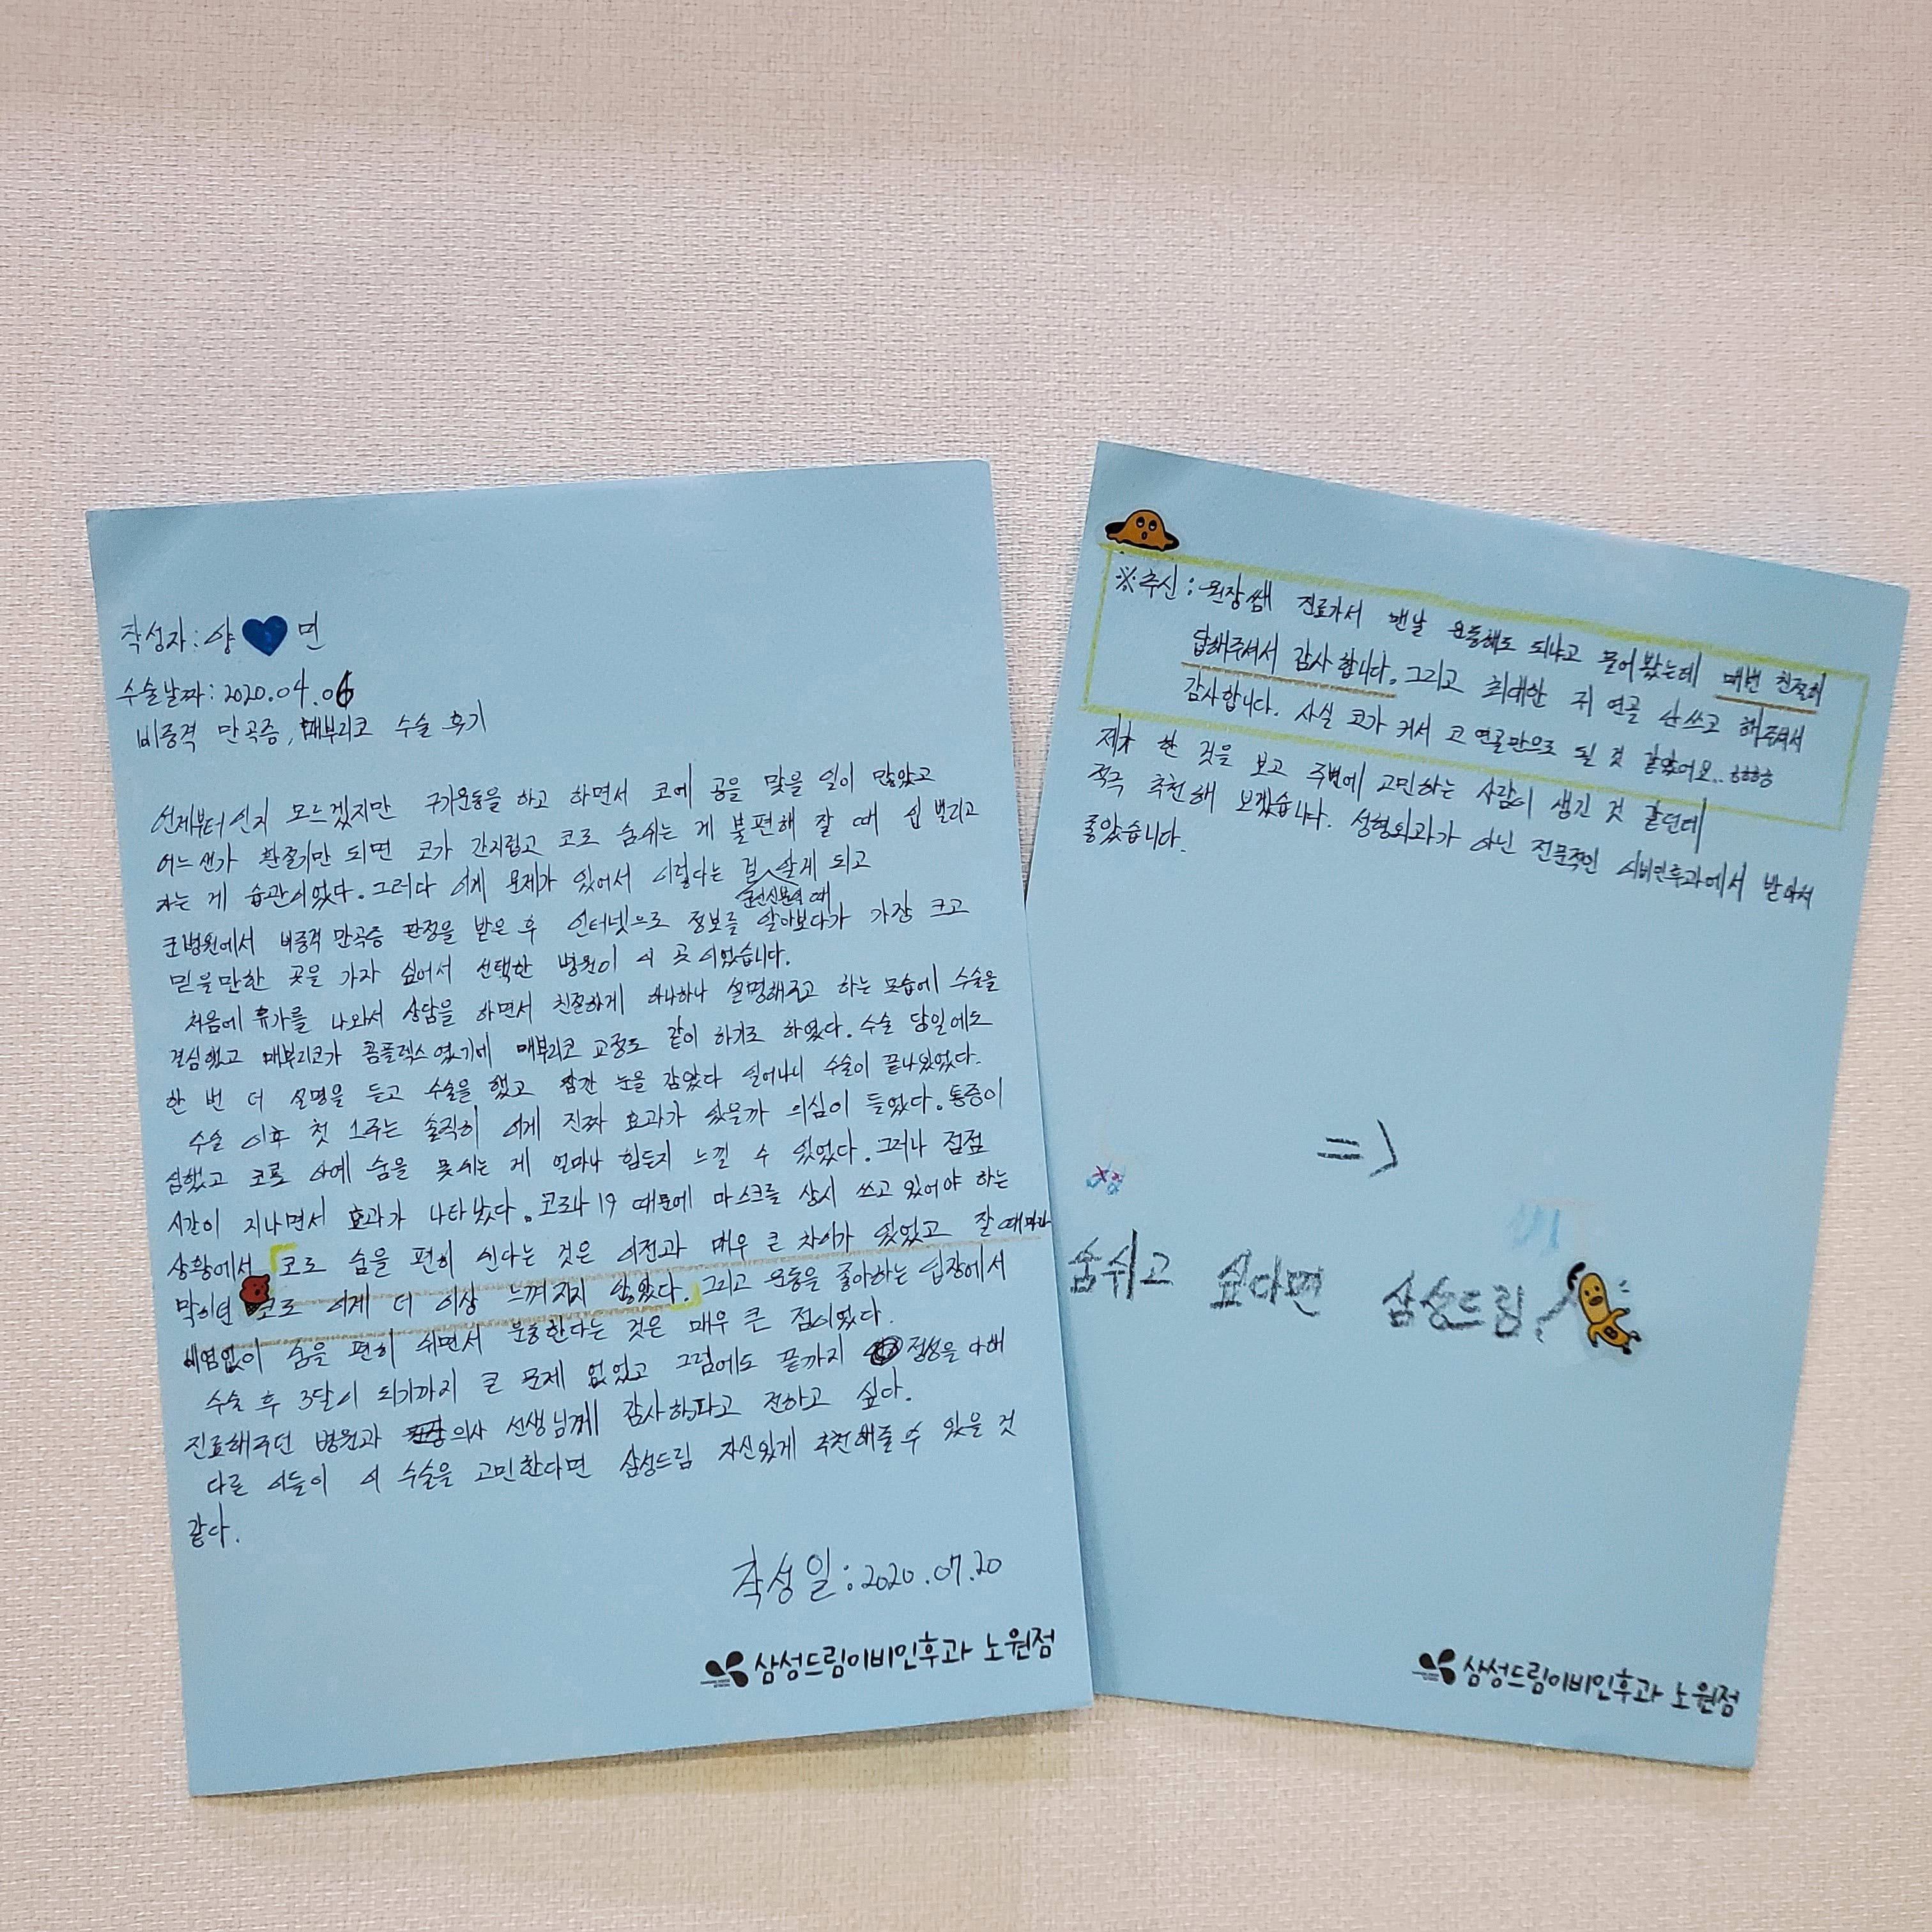 작성자: 양 민
수술날짜: 2020.04.06
비중격 만곡증, 매부리코 수술 후기
언제부터인지 모르겠지만 구기운동을 하고 하면서 코에 공을 맞을 일이 많았고
어느샌가 환절기만 되면 코가 간지럽고 코로 숨쉬는 게 불편해 잘 때 입 벌리고
자는 게 습관이었다. 그러다 이게 문제가 있어서 이렇다는 걸 알게 되고
군병원에서 비중격 만곡증 판정을 받은 후 인터넷으로 정보를 알아보다가 가장 크고
믿을만한 곳을 가자 싶어서 선택한 병원이 이 곳이었습니다.
처음에 휴가를 나와서 상담을 하면서 친절하게 하나하나 설명해주고 하는 모습에 수술을
결심했고 매부리코가 콤플렉스였기에 매부리코 교정도 같이 하기로 하였다. 수술 당일에도
한 번 더 설명을 듣고 수술을 했고 잠간 눈을 감았다 일어나니 수술이 끝나있었다.
수술 이후 첫 1주는 솔직히 이게 진짜 효과가 있을까 의심이 들었다. 통증이
심했고 코로 아예 숨을 못쉬는 게 얼마나 힘든지 느낄 수 있었다. 그러나 점점
시간이 지나면서 효과가 나타났다. 코로나19 때문에 마스크를 상시 쓰고 있어야 하는
상황에서 코로 숨을 편히 쉰다는 것은 이전과 매우 큰 차이가 있었고 잘때마다
막히던 코로 이제 더 이상 느껴지지 않았다. 그리고 운동을 좋아하는 입장에서
숨을 편히 쉬면서 운동한다는 것은 매우 큰 점이었다.
수술 후 3달이 되기까지 큰 문제 없었고 그럼에도 끝까지 정성을 다해
진료해주던 병원과 의사 선생님께 감사하다고 전하고 싶다.
다른 이들이 이 수술을 고민한다면 삼성드림 자신있게 추천해줄 수 있을 것
같다.
작성일: 2020.07.20
삼성드림이비인후과 노원점
※추신: 원장쌤 진료가서 맨날 운동해도 되냐고 물어봤는데 매번 친절히
답해주셔서 감사합니다. 그리고 최대한 귀 연골 안쓰고 해주셔서
감사합니다. 사실 코가 커서 코 연골만으로 될 것 같았어요.. ㅎㅎㅎㅎ
제가 한 것을 보고 주변에 고민하는 사람이 생긴 것 같던데
적극 추천해 보겠습니다. 성형외과가 아닌 전문적인 이비인후과에서 받아서
좋았습니다.
=>
숨쉬고 싶다면 삼성드림!
삼성드림이비인후과 노원점